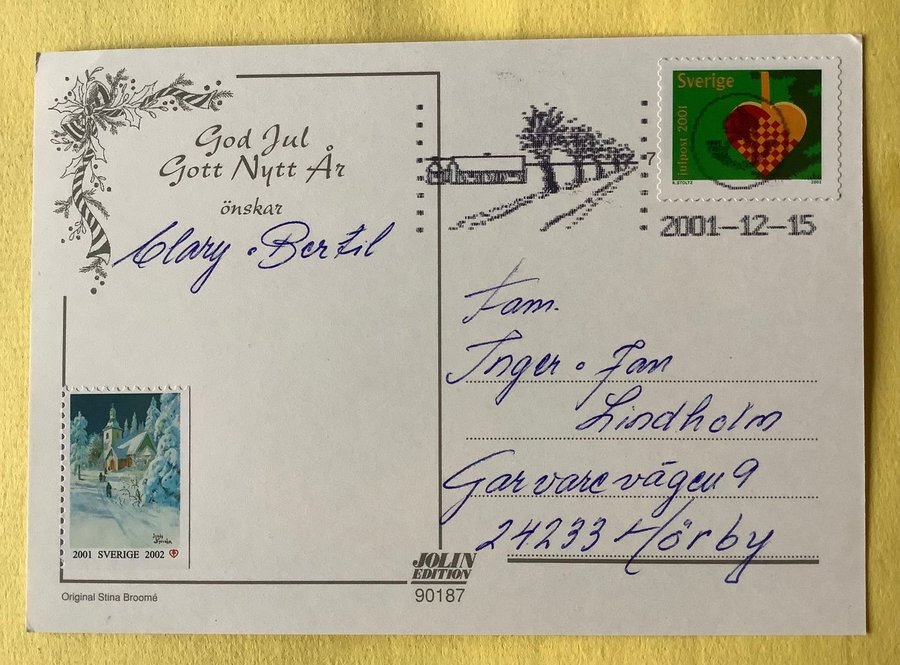 God Jul
Gott Nytt År
önskar
Clary o Bertil
2001 SVERIGE 2002
Original Stina Broomé
JOLIN
EDITION
90187
Sverige
Julpost 2001
2001
2001-12-15
Fam.
Inger o Jan
Lindholm
Garvarevägen 9
24233 Hörby